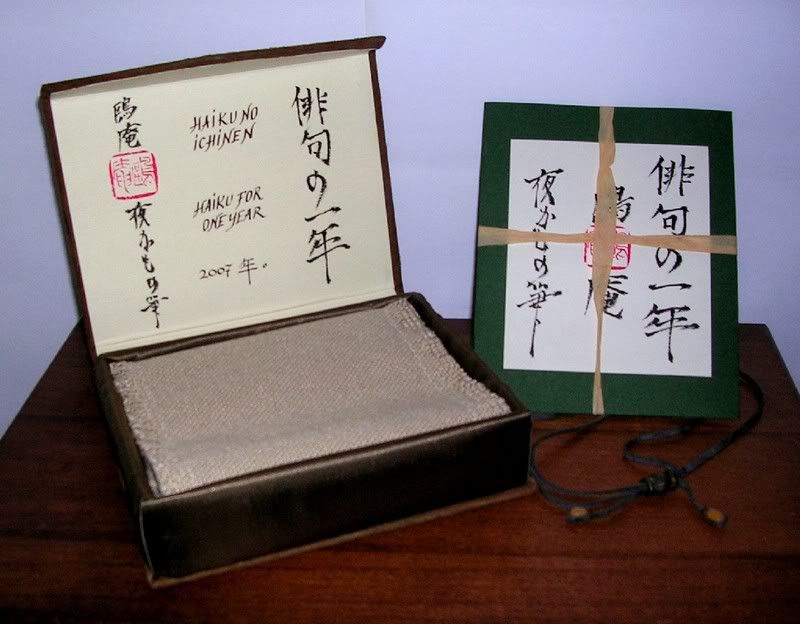 俳句の一年
HAIKU NO
ICHINEN
HAIKU FOR
ONE YEAR
2007年。
鴎庵
夜かもの筆
俳句の一年
庵
夜かもの筆